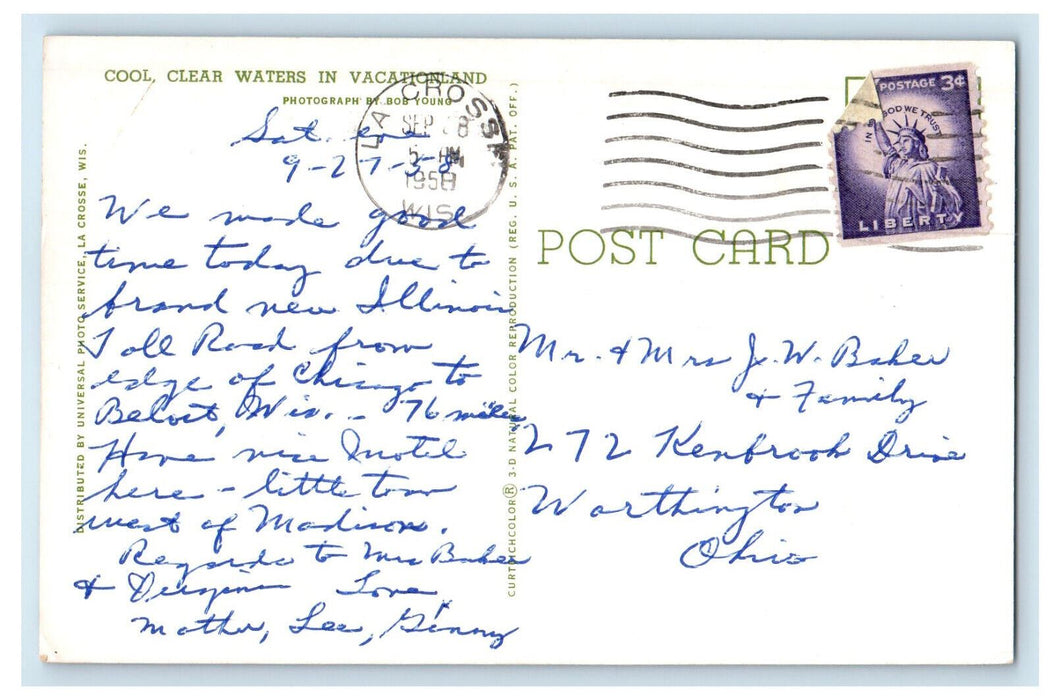 COOL, CLEAR WATERS IN VACATIONLAND
PHOTOGRAPH BY BOB YOUNG
Sat. eve
9-27-58
We made good
time today due to
brand new Illinois
Toll Road from
edge of Chicago to
Beloit, Wis. - 76 miles
Have nice Motel
here - little town
west of Madison.
Regards to Mrs Baker
&
Love
Mother, Lee, Ginny
DISTRIBUTED BY UNIVERSAL PHOTO SERVICE, LA CROSSE, WIS.
CURTEICHCOLOR® 3-D NATURAL COLOR REPRODUCTION (REG. U. S. A. PAT. OFF.)
LA CROSSE
SEP 28
5 PM
1958
WIS
POSTAGE 3¢
IN GOD WE TRUST
LIBERTY
POST CARD
Mr. & Mrs J. W. Baker
& Family
272 Kenbrook Drive
Worthington
Ohio